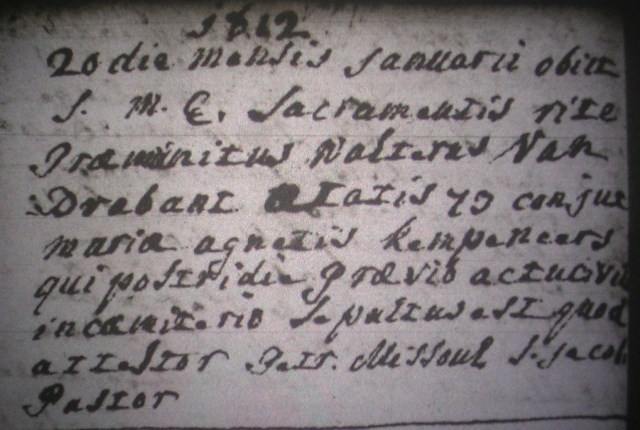 1812
20 die mensis januarii obiit
S. M. E. Sacramentis rite
Præmunitus Walterus Van
Drabant ætatis 79 conjux
mariæ agnetis kempeneers
qui postridie prævio actu civil
in cæmiterio Sepultus est quod
attestor Petr. Missoul S. jacob
Pastor